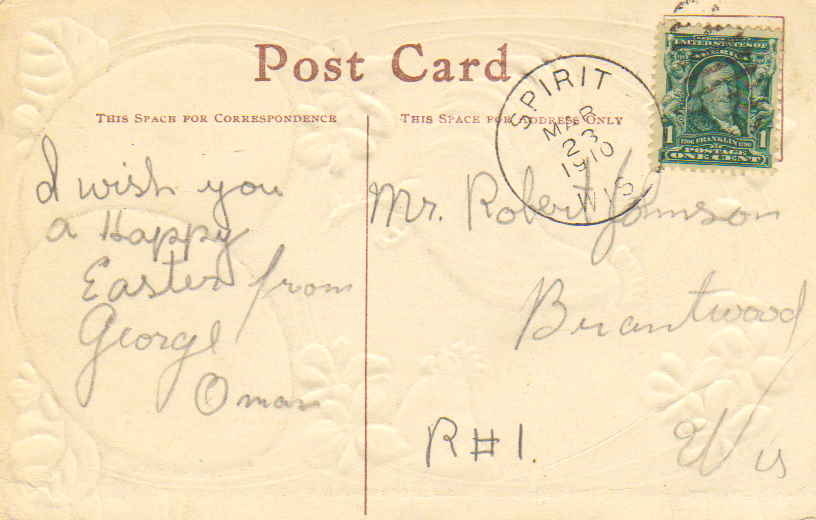 Post Card
THIS SPACE FOR CORRESPONDENCE
THIS SPACE FOR ADDRESS ONLY
SPIRIT
MAR
23
1910
WIS
UNITED STATES OF
AMERICA
1 FRANKLIN 1
POSTAGE
ONE CENT
I wish you
a Happy
Easter from
George
Oman
Mr. Robert Johnson
Brantwood
R#1.
Wis